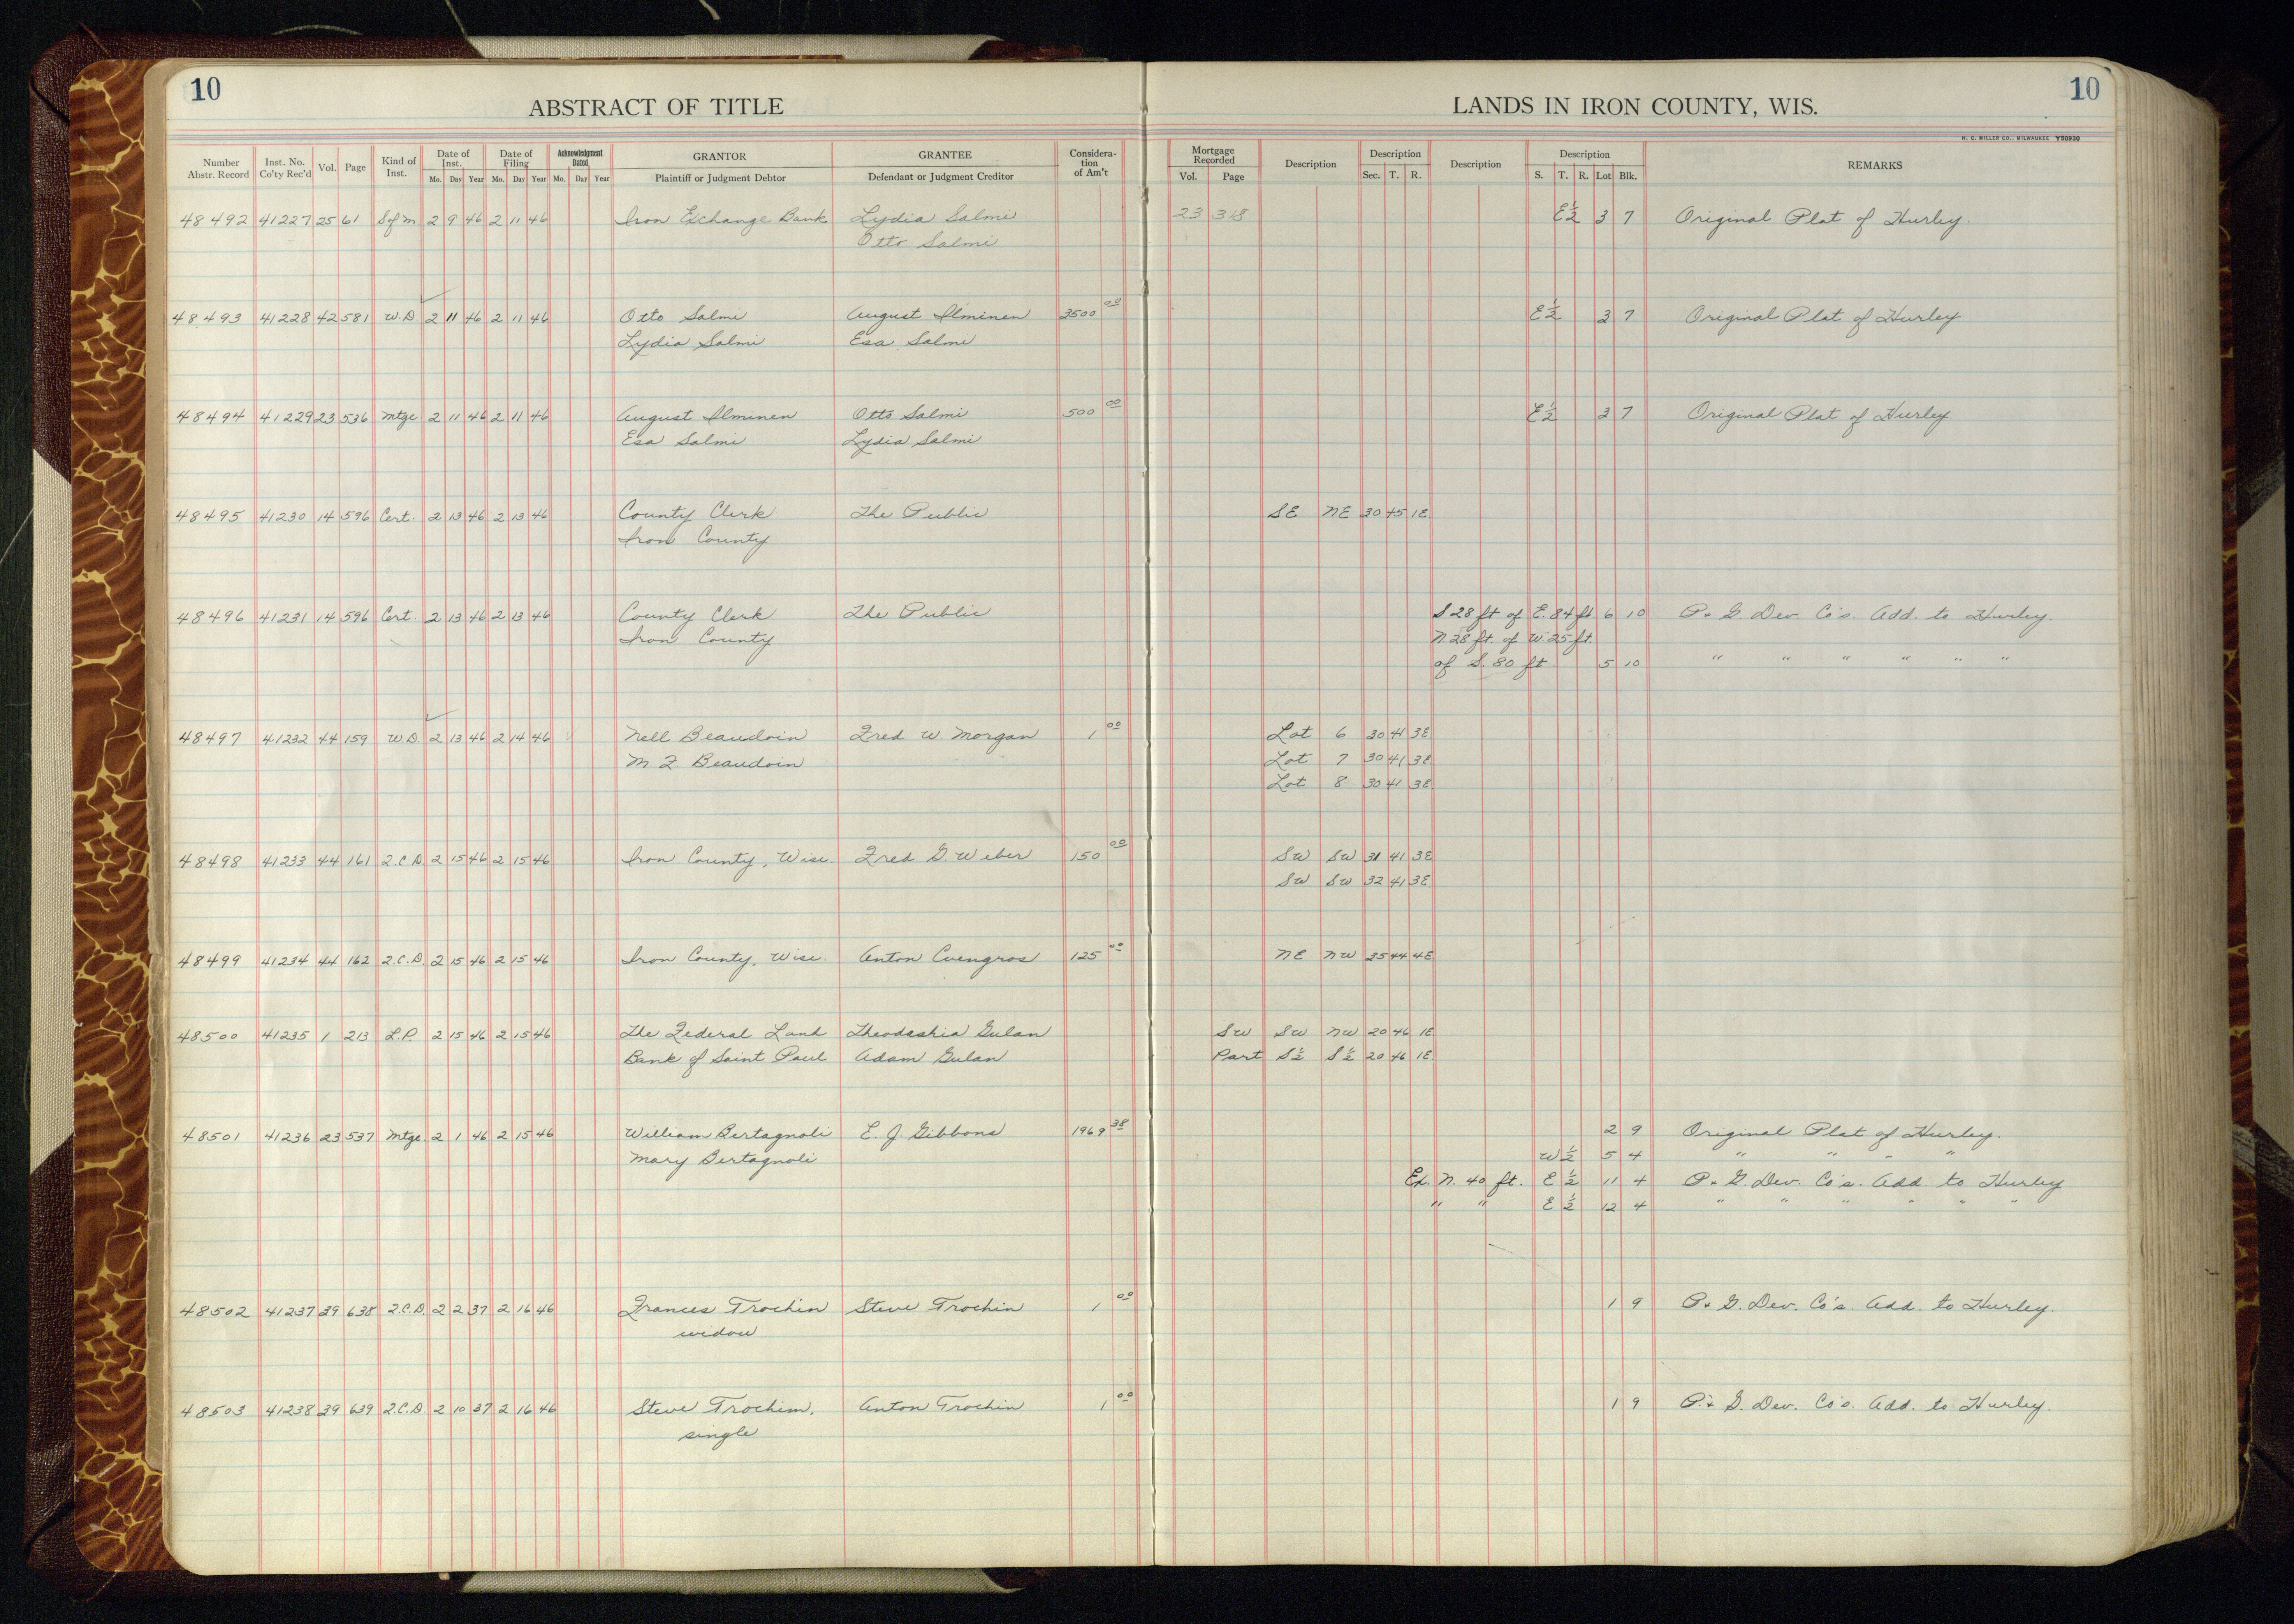 10
10
ABSTRACT OF TITLE
LANDS IN IRON COUNTY, WIS.
H. C. MILLER CO., MILWAUKEE Y50930
Number Abstr. Record Inst. No. Co'ty Rec'd Vol. Page Kind of Inst. Date of Inst. Mo. Day Year Date of Filing Mo. Day Year Acknowledgment Dated Mo. Day Year GRANTOR Plaintiff or Judgment Debtor GRANTEE Defendant or Judgment Creditor Considera- tion of Am't Mortgage Recorded Vol. Page Description Description Sec. T. R. Description Description S. T. R. Lot Blk. REMARKS
48492 41227 25 61 Sfm 2 9 46 2 11 46 Iron Exchange Bank Lydia Salmi 23 318 E½ 3 7 Original Plat of Hurley.
Otto Salmi
48493 41228 42 581 W.D. 2 11 46 2 11 46 Otto Salmi August Ilminen 3500 00 E½ 3 7 Original Plat of Hurley
Lydia Salmi Esa Salmi
48494 41229 23 536 Mtge 2 11 46 2 11 46 August Ilminen Otto Salmi 500 00 E½ 3 7 Original Plat of Hurley
Esa Salmi Lydia Salmi
48495 41230 14 596 Cert. 2 13 46 2 13 46 County Clerk The Public SE NE 30 45 1E
Iron County
48496 41231 14 596 Cert. 2 13 46 2 13 46 County Clerk The Public S 28 ft of E. 84 ft. 6 10 P. & G. Dev. Co's. Add. to Hurley.
Iron County N. 28 ft. of W. 25 ft.
of S. 80 ft. 5 10 " " " " " "
48497 41232 44 159 W.D 2 13 46 2 14 46 Nell Beaudoin Fred W. Morgan 1 00 Lot 6 30 41 3E
M. F. Beaudoin Lot 7 30 41 3E
Lot 8 30 41 3E
48498 41233 44 161 2.C.D. 2 15 46 2 15 46 Iron County, Wisc. Fred G. Weber 150 00 SW SW 31 41 3E
SW SW 32 41 3E
48499 41234 44 162 2.C.D. 2 15 46 2 15 46 Iron County, Wisc. Anton Cuengros 125 00 NE NW 35 44 4E
48500 41235 1 213 L.P. 2 15 46 2 15 46 The Federal Land Theodeshia Gulan SW SW NW 20 46 1E
Bank of Saint Paul Adam Gulan Part S½ S½ 20 46 1E
48501 41236 23 537 Mtge 2 1 46 2 15 46 William Bertagnoli E. J. Gibbons 1969 38 2 9 Original Plat of Hurley.
Mary Bertagnoli W½ 5 4 " " " "
Ex. N. 40 ft. E½ 11 4 P. & G. Dev. Co's. Add. to Hurley
" " E½ 12 4 " " " " " "
48502 41237 39 638 2.C.D. 2 2 37 2 16 46 Frances Trochin Steve Trochin 1 00 1 9 P. & G. Dev. Co's. Add. to Hurley.
widow
48503 41238 39 639 2.C.D. 2 10 37 2 16 46 Steve Trochim, Anton Trochin 1 00 1 9 P. & G. Dev. Co's. Add. to Hurley.
single